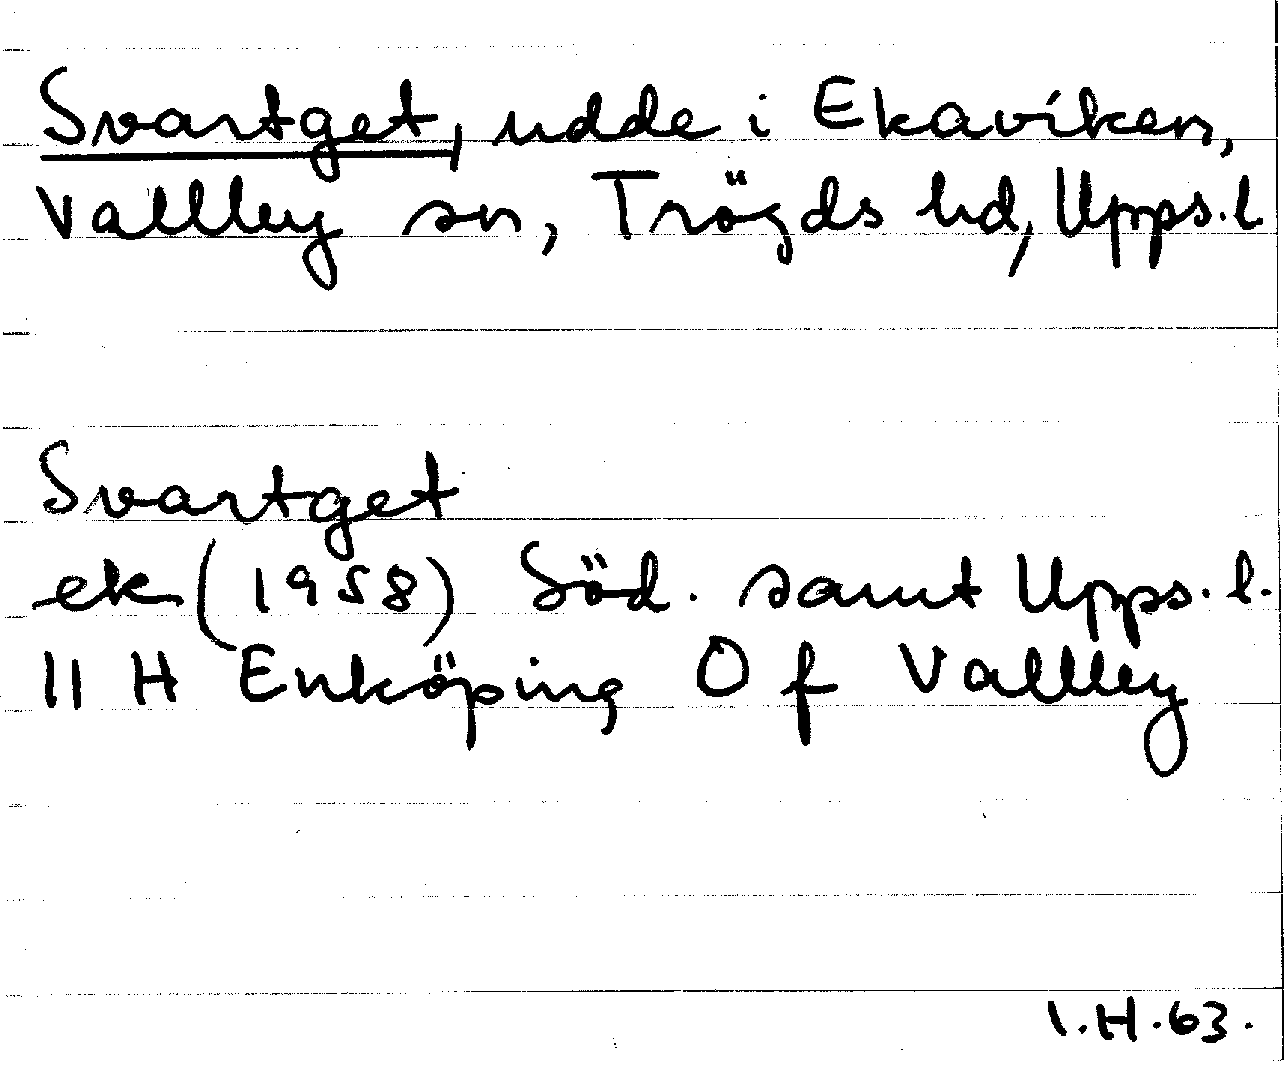 Svartget, udde i Ekaviken,
Vallby sn, Trögds hd, Upps.l
Svartget
ek (1958) Söd. samt Upps.l.
11 H Enköping O f Vallby
I.H.63.